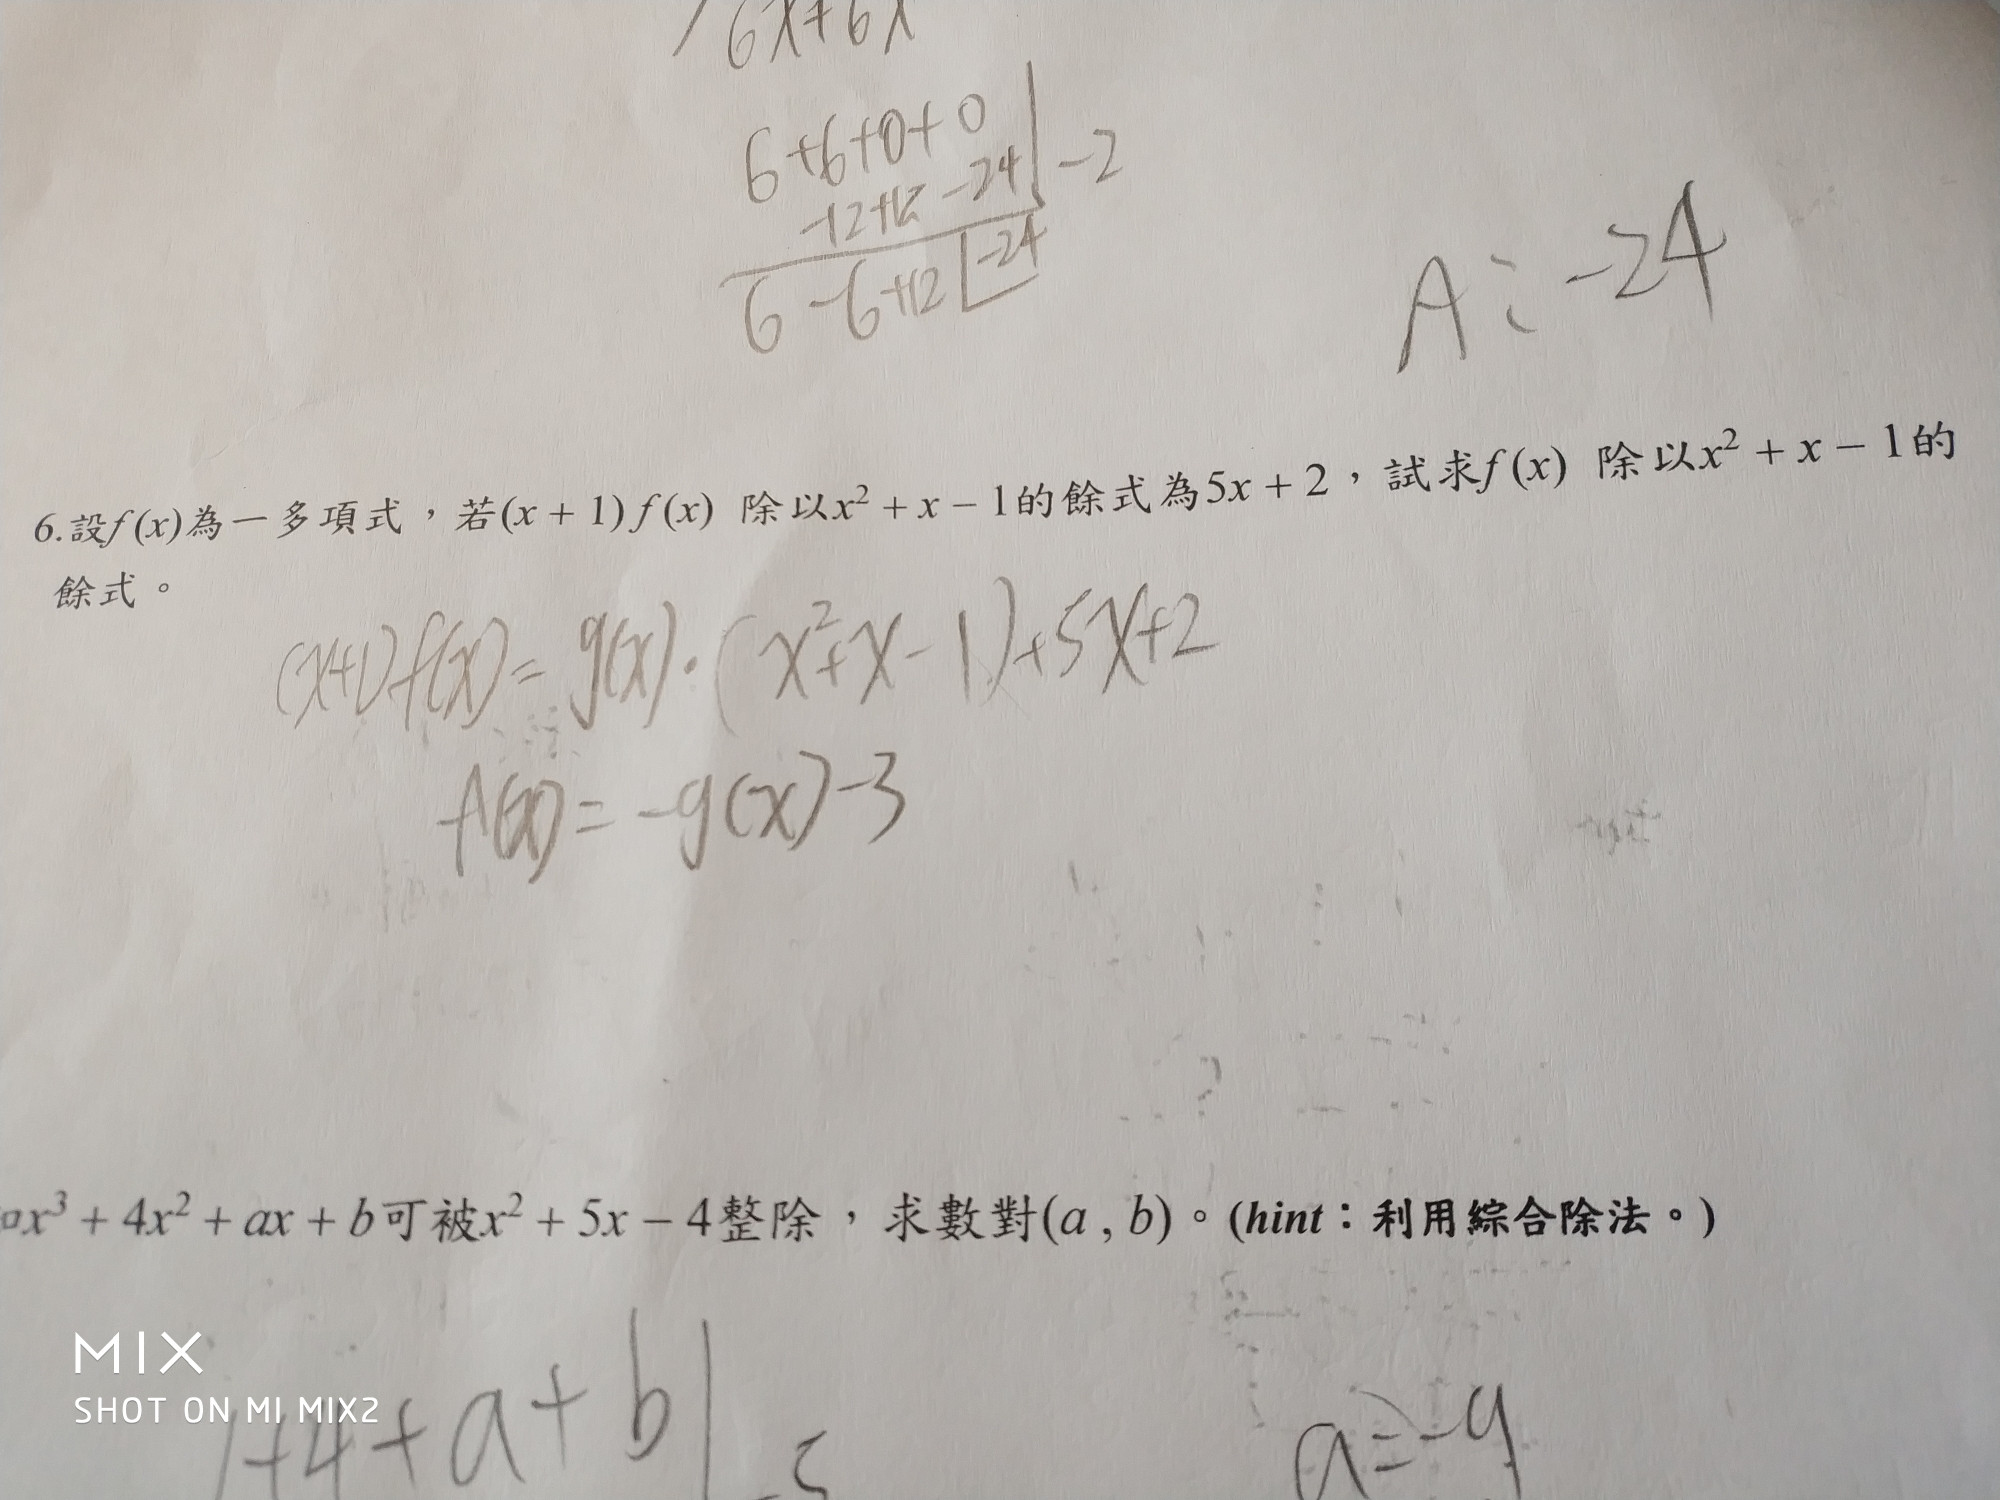 6x+6x
6+6+0+0
-2
-12+12 -24
6 -6+12 -24
A: -24
6.設f(x)為一多項式，若(x + 1) f(x) 除以x² + x − 1的餘式為5x + 2，試求f(x) 除以x² + x − 1的
餘式。
(x+1) f(x) = g(x)·(x²+x-1)+5x+2
f(x) = -g(x)-3
x³ + 4x² + ax + b可被x² + 5x − 4整除，求數對(a , b)。(hint：利用綜合除法。)
1+4+a+b
a=-9
MIX
SHOT ON MI MIX2